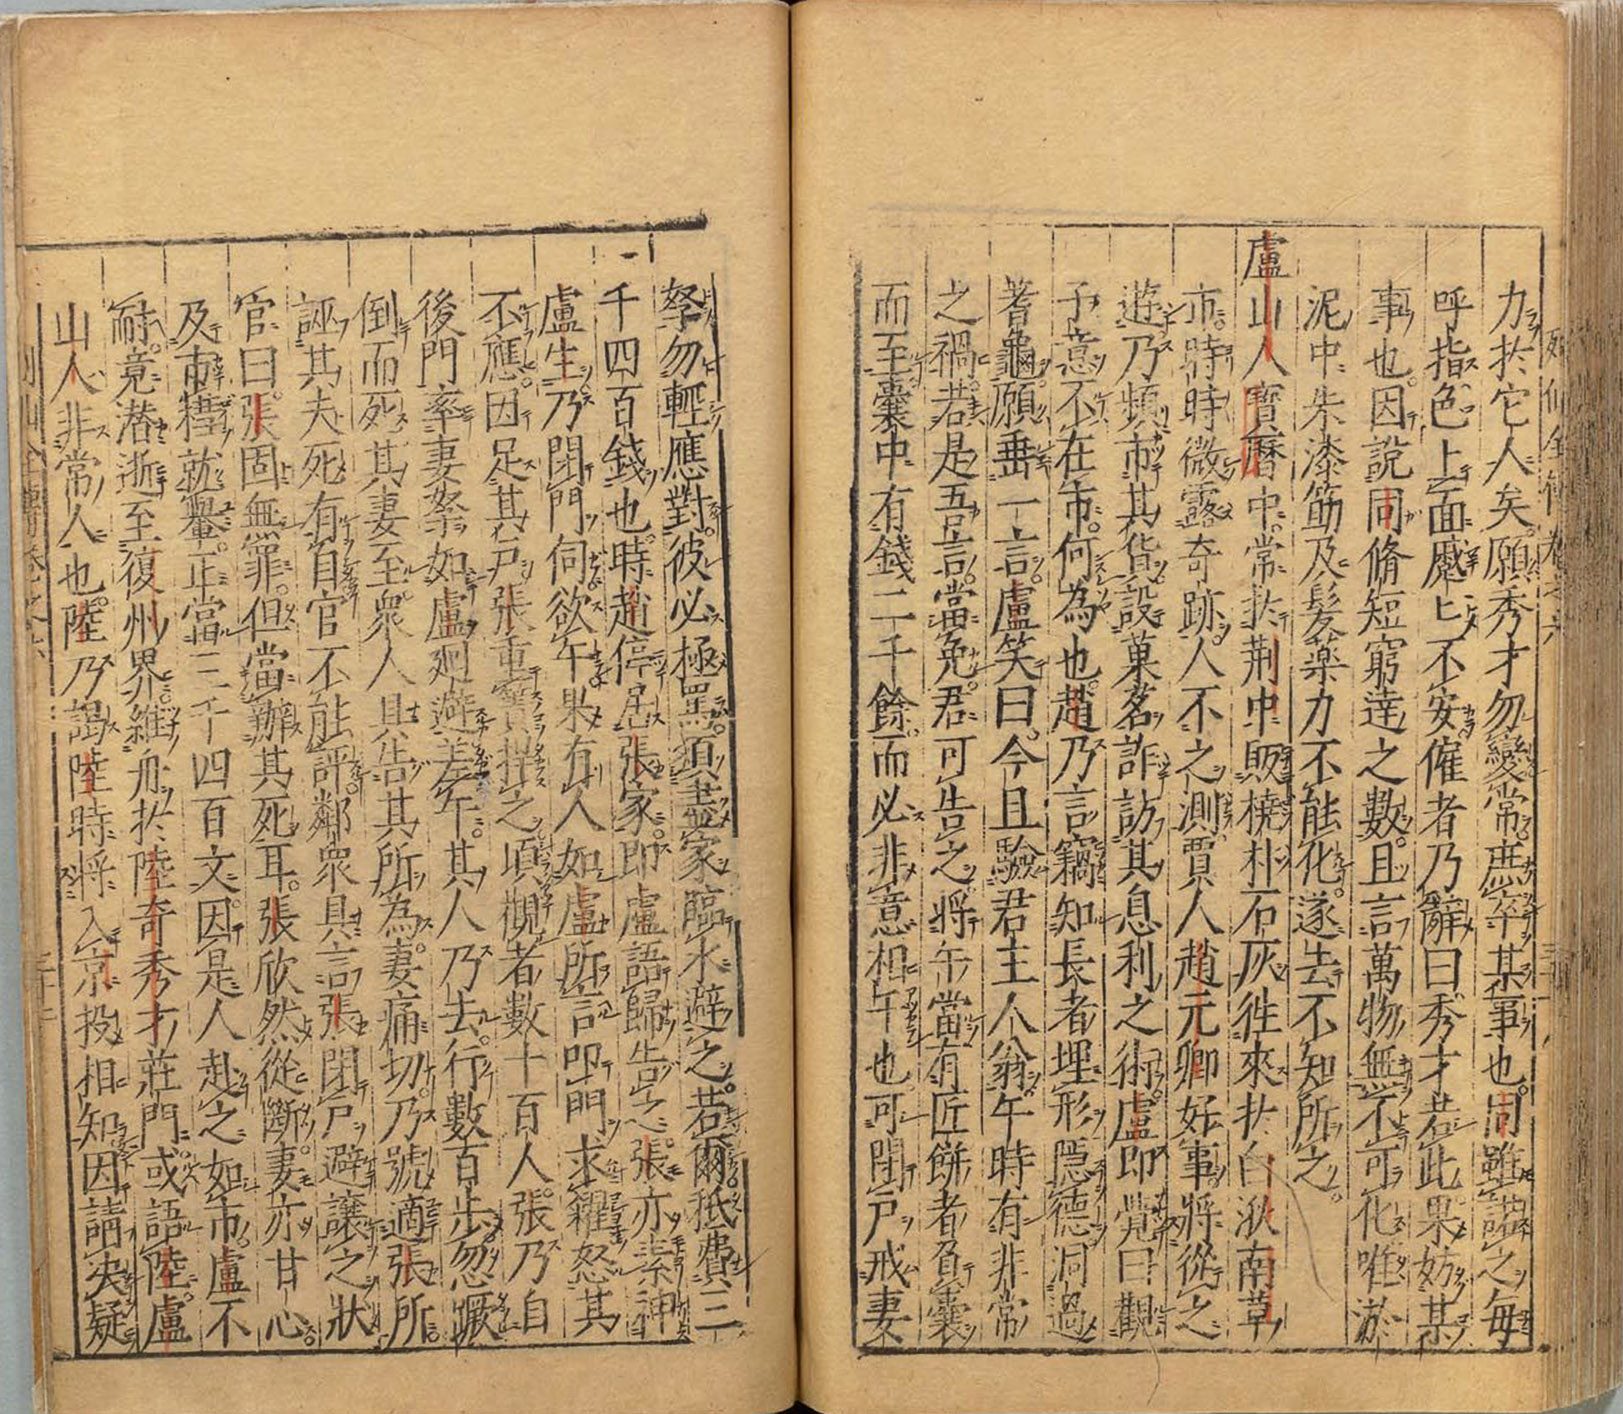 力於它人矣願秀才勿變常庶卒某事也同雖諾之每
呼指色上面蹙ヒ不安僱者乃辭曰秀才若此果妨某
事也因說同脩短窮達之數且言萬物無不可化唯淤
泥中朱漆筯及髪藥力不能化遂去不知所之
盧山人寳曆中常於荆中販橈朴石灰徃來於白洑南草
市時時微露奇跡人不之測賈人趙元卿好事將從之
遊乃頻市其貨設菓茗詐訪其息利之術盧即覺曰觀
予意不在市何為也趙乃言竊知長者埋形隱德洞過
蓍龜願垂一言盧笑曰今且驗君主人翁午時有非常
之禍若是吾言當免君可告之將午當有匠餅者負囊
而至囊中有錢二千餘而必非意相午也可閉戸戒妻
孥勿輕應對彼必極罵須盡家臨水避之若爾秪費三
千四百錢也時趙停居張家即盧語歸告之張亦素神
盧生乃閉門伺欲午果有人如盧所言叩門求糴怒其
不應因足其戸張重簀捍之頃觀者數十百人張乃自
後門率妻孥如盧廻避差午其人乃去行數百步忽蹶
倒而死其妻至衆人具告其所為妻痛切乃號適張所
誣其夫死有自官不能評鄰衆具言張閉戸避讓之狀
官曰張固無罪但當辦其死耳張欣然從斷妻亦甘心
及市槥就轝正當三千四百文因是人赴之如市盧不
耐竟潜逝至復州界維舟於陸奇秀才莊門或語陸盧
山人非常人也陸乃謁陸時將入京投相知因請決疑